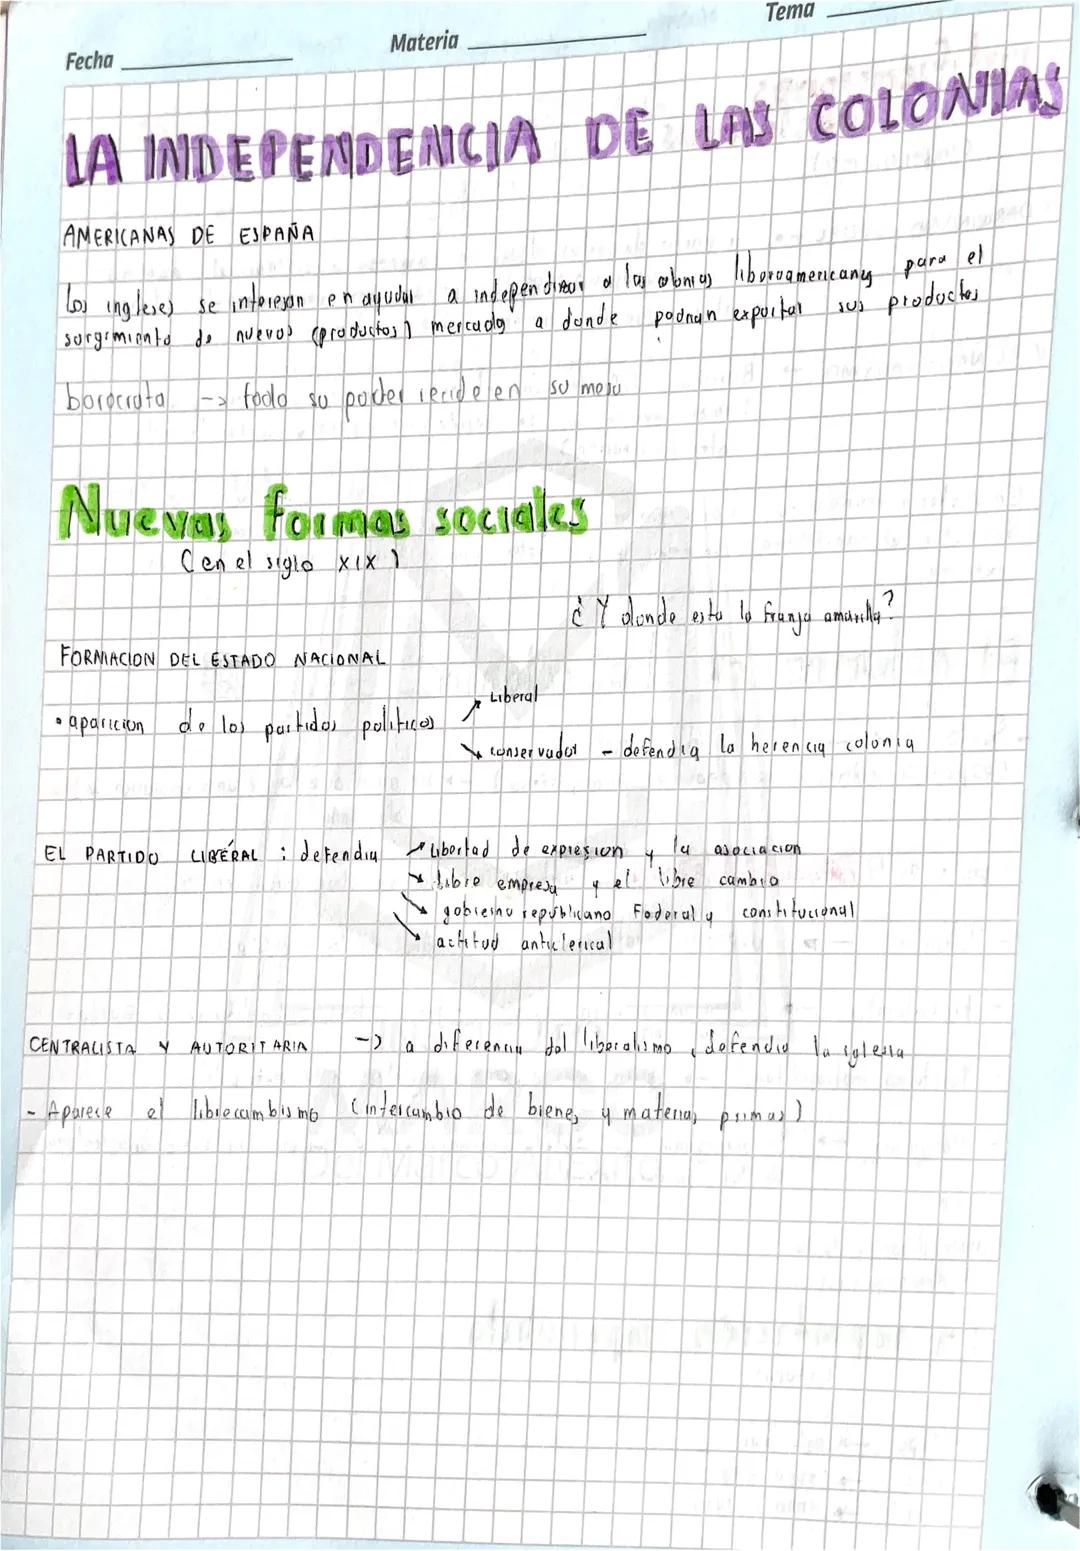 Fecha Materia Tema
LA INDEPENDENCIA DE LAS COLONIAS
AMERICANAS DE ESPAÑA
Los ingleses se interesan en ayudar a independizar a las colonias liberoamericanas para el
surgimiento de nuevos (productos) mercados a donde podrian exportar sus productos
borocrata -> todo su poder recide en su mesa
Nuevas formas sociales
(en el siglo XIX)
¿Y donde esta la franja amarilla?
FORMACION DEL ESTADO NACIONAL
• aparicion de los partidos politicos
Liberal
conservador - defendia la herencia colonia
EL PARTIDO LIBERAL : defendia libertad de expresion y la asociacion
libre empresa y el libre cambio
gobierno republicano Federal y constitucional
actitud anticlerical
CENTRALISTA Y AUTORITARIA -> a diferencia del liberalismo, defendio la iglesia
- Aparece el librecambismo (intercambio de bienes y materias primas)